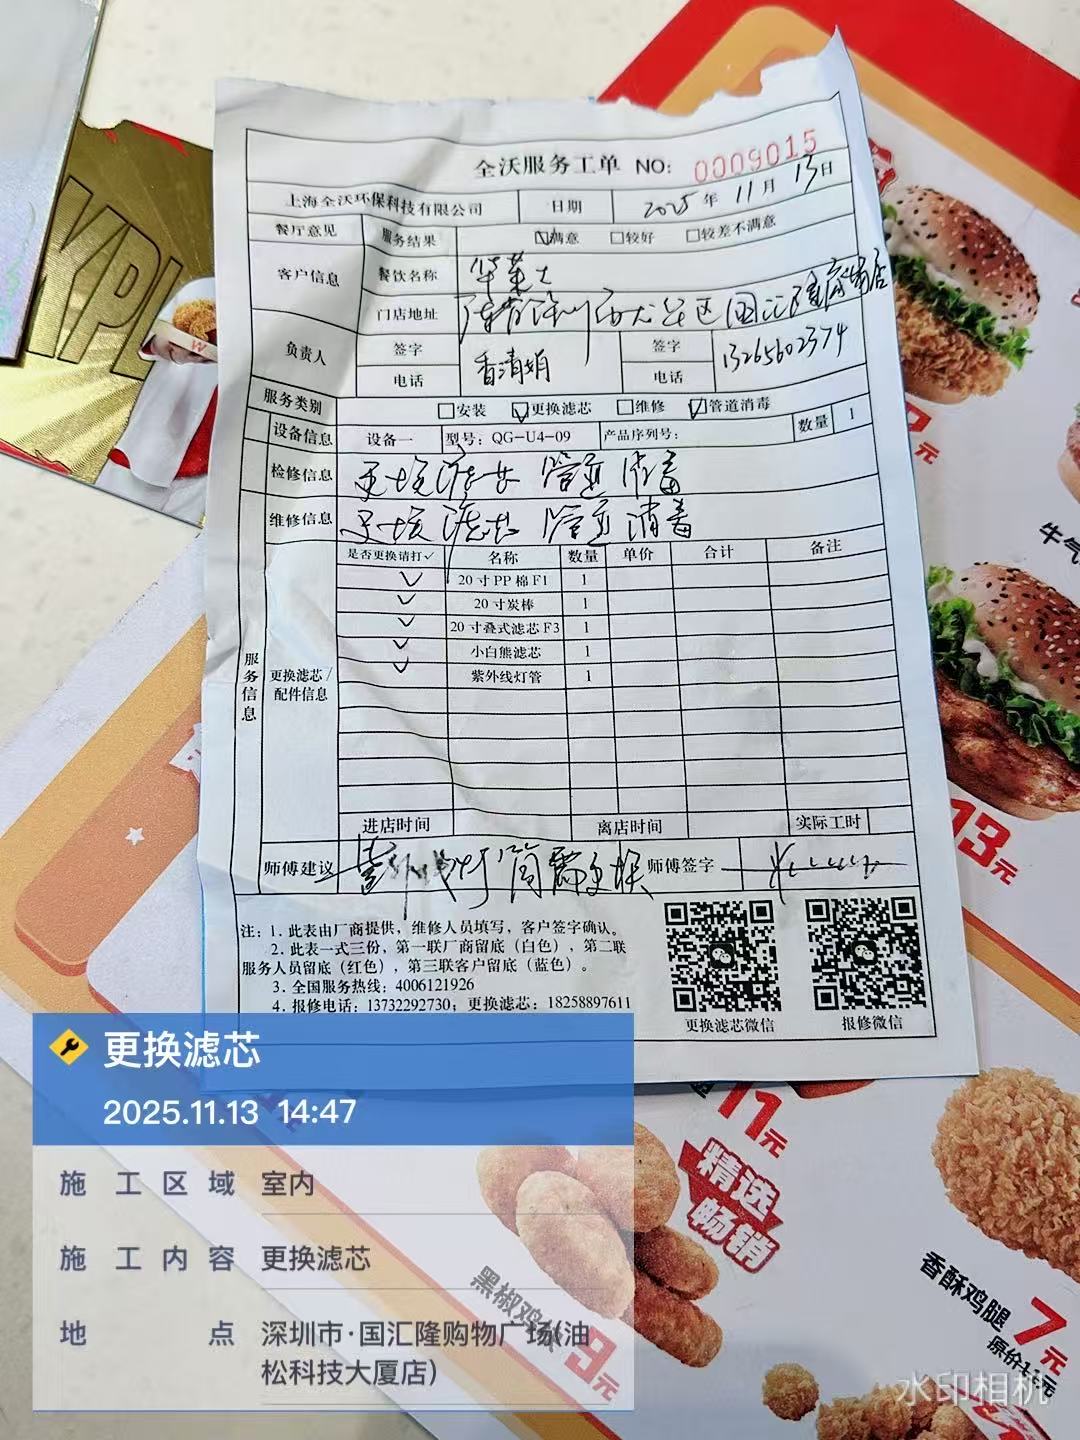 全沃服务工单 NO: 0009015
上海全沃环保科技有限公司 日期 2025年 11月 13日
餐厅意见 服务结果 ☑满意 □较好 □较差不满意
客户信息 餐饮名称 华莱士
门店地址
负责人 签字 签字
电话 电话 13265602374
服务类别 □安装 ☑更换滤芯 □维修 ☑管道消毒
设备信息 设备一 型号: QG-U4-09 产品序列号: 数量 1
检修信息 更换滤芯 管道消毒
维修信息 更换滤芯 管道消毒
服务信息
更换滤芯/配件信息
是否更换请打✓ 名称 数量 单价 合计 备注
✓ 20寸PP棉F1 1
✓ 20寸炭棒 1
✓ 20寸叠式滤芯F3 1
✓ 小白熊滤芯 1
✓ 紫外线灯管 1
进店时间 离店时间 实际工时
师傅建议 师傅签字
注: 1. 此表由厂商提供，维修人员填写，客户签字确认。
2. 此表一式三份，第一联厂商留底（白色），第二联
服务人员留底（红色），第三联客户留底（蓝色）。
3. 全国服务热线: 4006121926
4. 报修电话: 13732292730; 更换滤芯: 18258897611
更换滤芯微信 报修微信
更换滤芯
2025.11.13 14:47
施工区域 室内
施工内容 更换滤芯
地点 深圳市·国汇隆购物广场(油
松科技大厦店)
KPL
W
牛气
13元
11元
精选
畅销
9元
香酥鸡腿 7元
水印相机